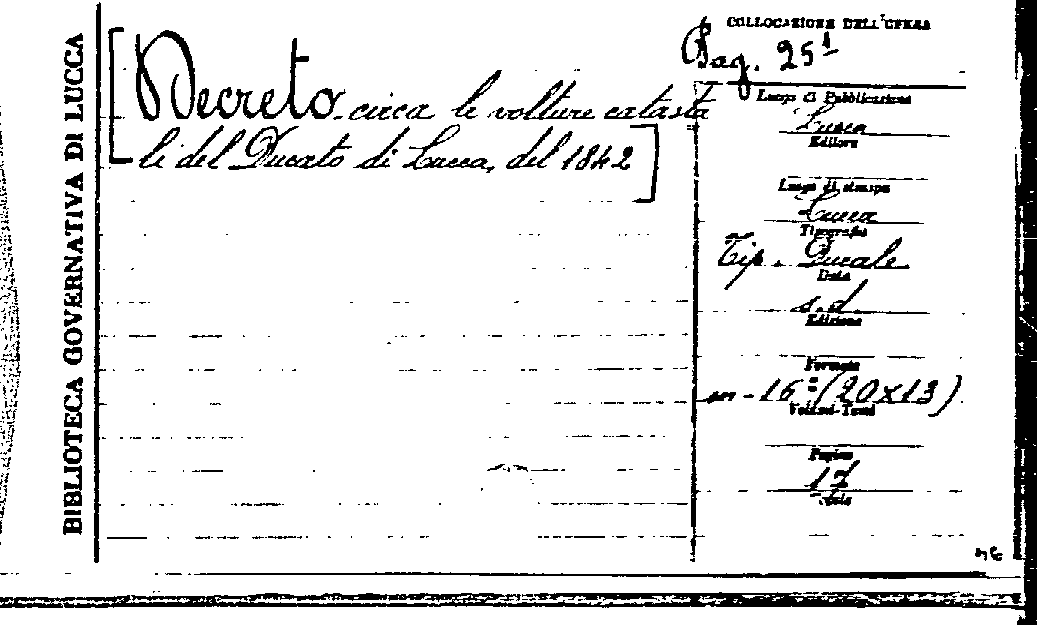 BIBLIOTECA GOVERNATIVA DI LUCCA
[Decreto circa le volture catasta
li del Ducato di Lucca, del 1842]
COLLOCAZIONE DELL'OPERA
Bag. 25¹
Luogo di Pubblicazione
Lucca
Editore
Luogo di stampa
Lucca
Tipografia
Tip. Ducale
Data
s.d.
Edizione
Formato
in-16º (20x13)
Volumi-Tomi
Pagine
17